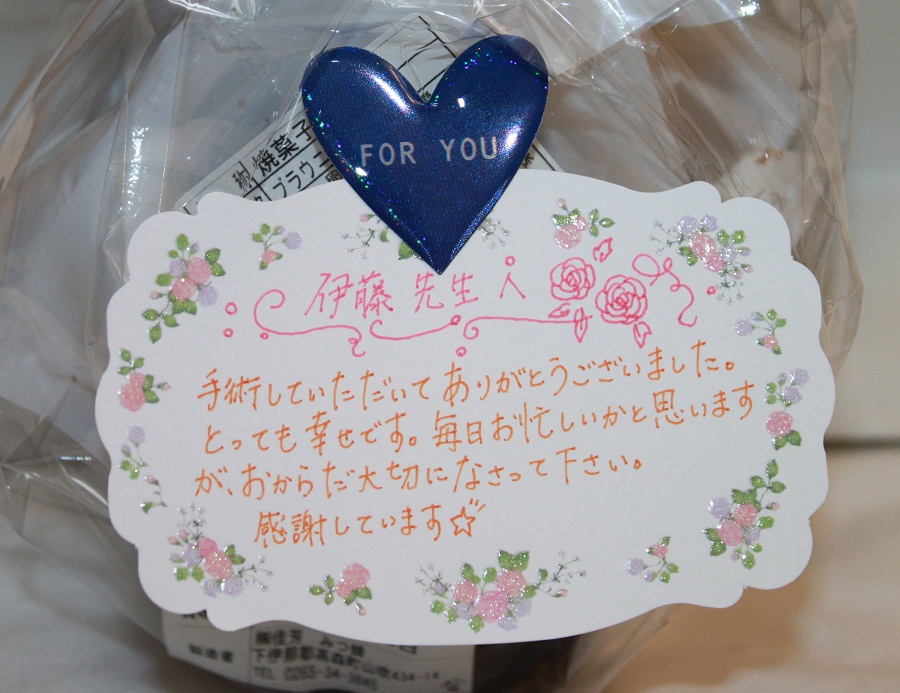 焼菓子
FOR YOU
伊藤 先生へ
手術していただいてありがとうございました。
とっても幸せです。毎日お忙しいかと思います
が、おからだ大切になさって下さい。
感謝しています☆
製造者
下伊那郡高森町山吹434-14
TEL 0265-34-3845